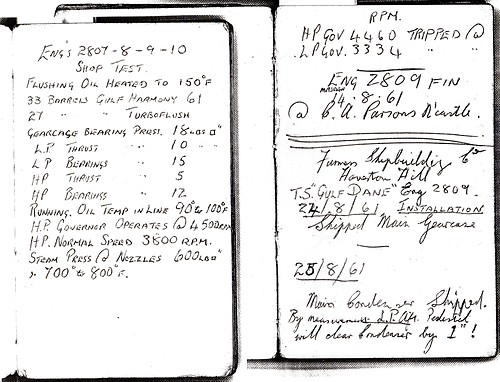 ENG'S 2807-8-9-10
SHOP TEST.
FLUSHING OIL HEATED TO 150°F
33 BARRELS GULF HARMONY 61
27 " " TURBOFLUSH
GEARCAGE BEARING PRESS. 18 LBS □"
L.P THRUST " 10 " "
LP BEARINGS " 15
HP THRUST " 5
HP BEARINGS " 12
RUNNING. OIL TEMP IN LINE 90° to 100°F
H.P. GOVERNOR OPERATES @ 4500 RPM
H.P. NORMAL SPEED 3800 R.P.M.
STEAM PRESS @ NOZZLES 600 LBS □"
" 700° to 800°F.
RPM.
HP GOV 4460 TRIPPED @
L.P GOV. 3334 " "
ENG 2809 FIN
14.8.61
@ C. A. Parsons N'castle.
Furness Shipbuilding Co
Haverton Hill
T.S. "GULF DANE" Eng 2809.
24/8/61 INSTALLATION
Shipped Main Gearcase
25/8/61
Main Condenser Shipped.
By measurement L.P. Aft. Pedestal
will clear Condenser by 1"!